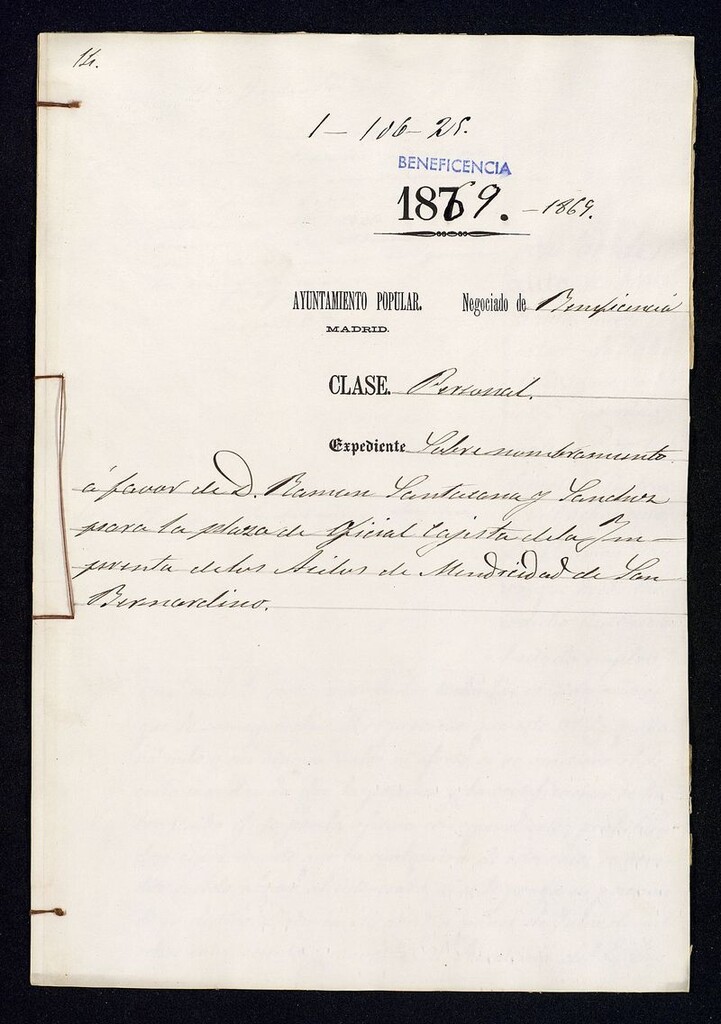 14.
1-106-25.
BENEFICENCIA
1869. -1869.
AYUNTAMIENTO POPULAR. Negociado de Beneficencia
MADRID.
CLASE. Personal.
Expediente Sobre nombramiento
á favor de D. Ramon Santazana y Sanchez
para la plaza de Oficial Cajista de la Im-
prenta de los Asilos de Mendicidad de San
Bernardino.